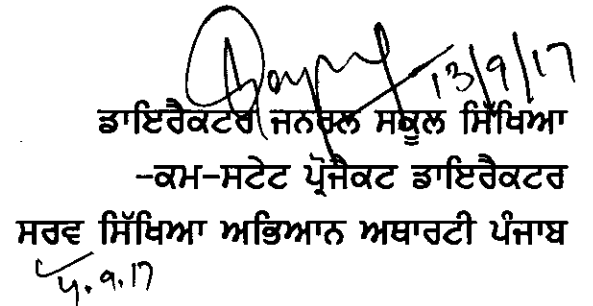 13/9/17
ਡਾਇਰੈਕਟਰ ਜਨਰਲ ਸਕੂਲ ਸਿੱਖਿਆ
-ਕਮ-ਸਟੇਟ ਪ੍ਰੋਜੈਕਟ ਡਾਇਰੈਕਟਰ
ਸਰਵ ਸਿੱਖਿਆ ਅਭਿਆਨ ਅਥਾਰਟੀ ਪੰਜਾਬ